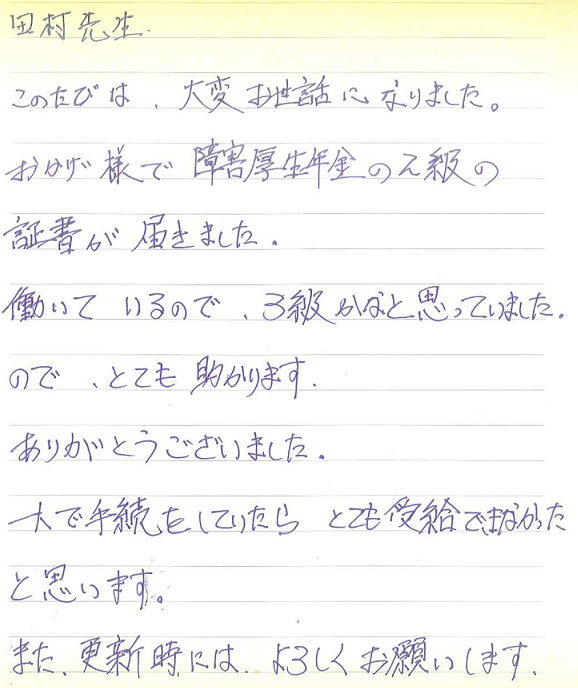 田村先生.
このたびは、大変お世話になりました。
おかげ様で障害厚生年金の2級の
証書が届きました。
働いているので、3級かなと思っていました。
ので、とても助かります.
ありがとうございました。
一人で手続をしていたらとても受給できなかった
と思います。
また、更新時には、よろしくお願いします.